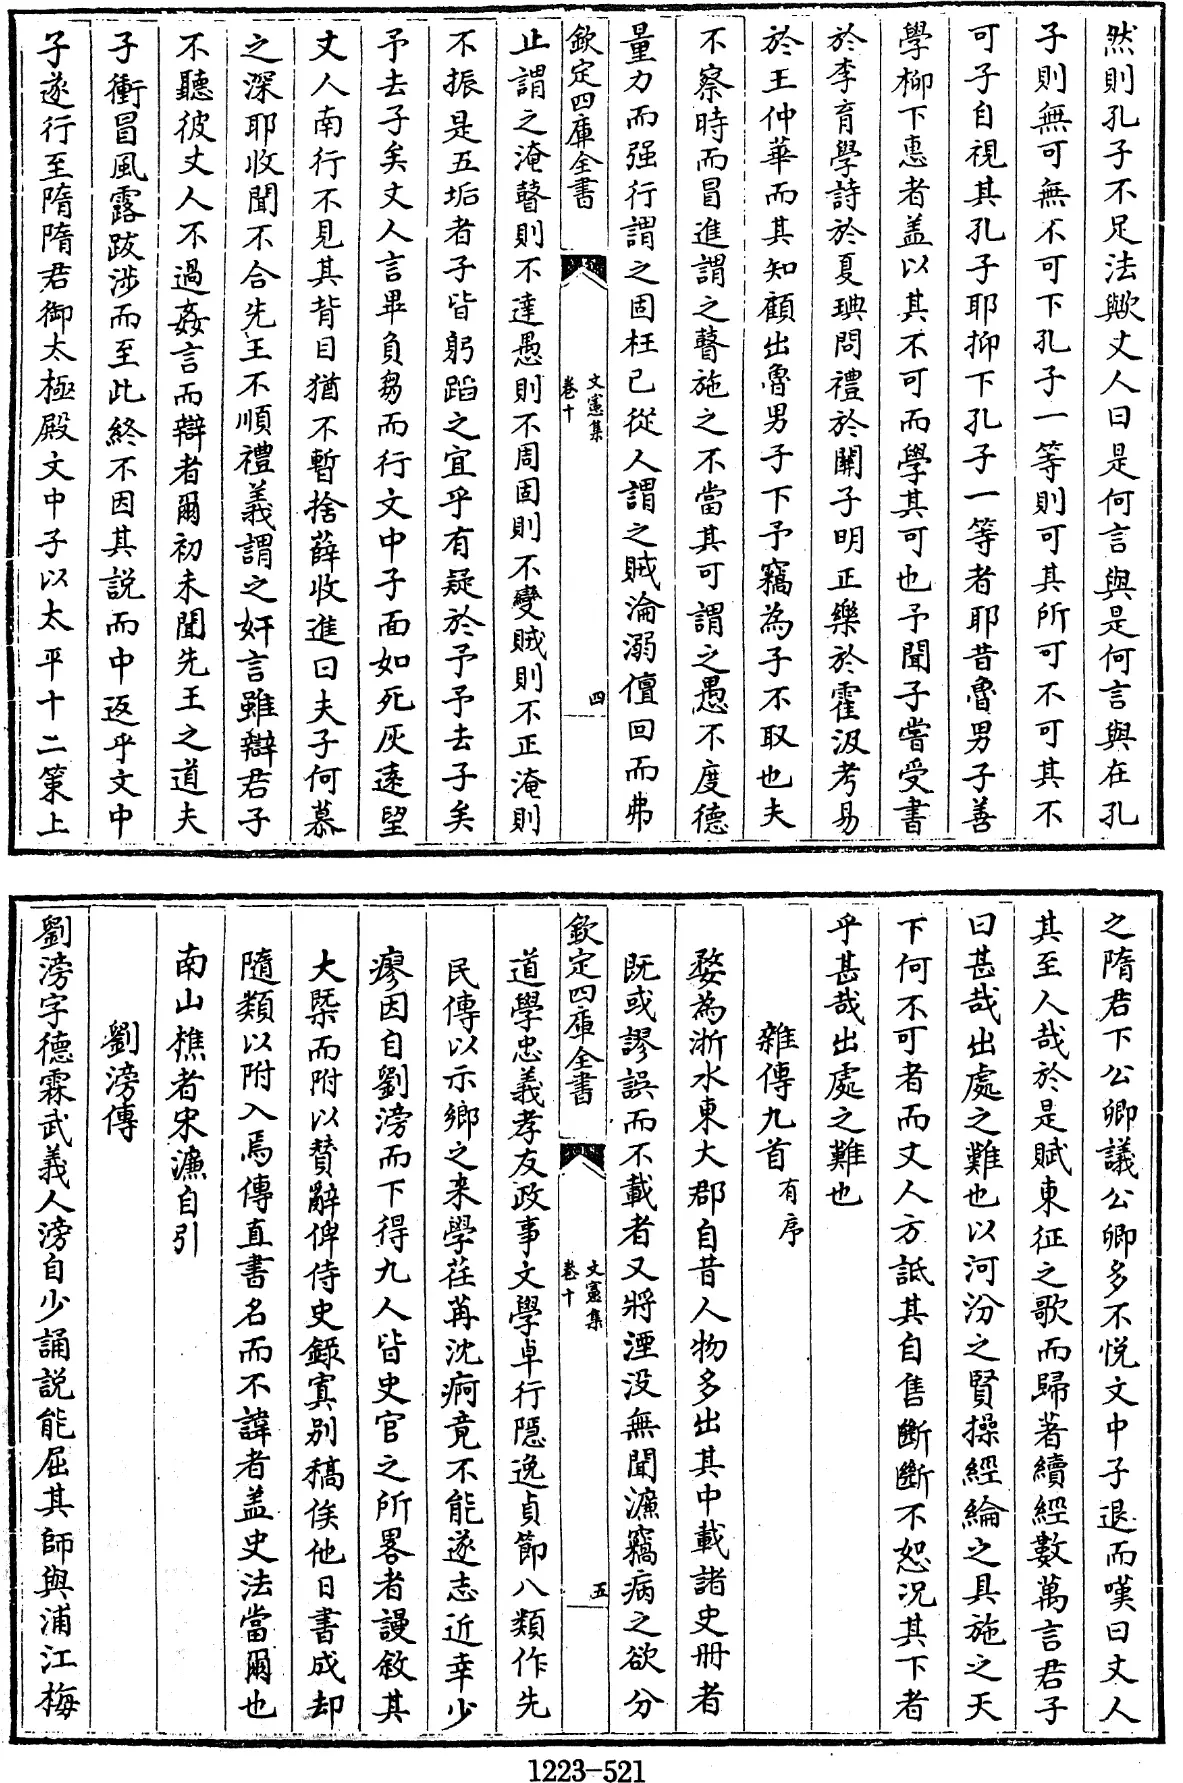 然則孔子不足法歟丈人曰是何言與是何言與在孔
子則無可無不可下孔子一等則可其所可不可其不
可子自視其孔子耶抑下孔子一等者耶昔魯男子善
學柳下惠者盖以其不可而學其可也予聞子嘗受書
於李育學詩於夏琠問禮於關子明正樂於霍汲考易
於王仲華而其知顧出魯男子下予竊為子不取也夫
不察時而冒進謂之瞽施之不當其可謂之愚不度德
量力而强行謂之固枉已從人謂之賊淪溺儃回而弗
欽定四庫全書
文憲集
卷十
四
止謂之淹瞽則不達愚則不周固則不變賊則不正淹則
不振是五垢者子皆躬蹈之宜乎有疑於予予去子矣
予去子矣丈人言畢負芻而行文中子面如死灰遠望
丈人南行不見其背目猶不暫捨薛收進曰夫子何慕
之深耶收聞不合先王不順禮義謂之奸言雖辯君子
不聽彼丈人不過姦言而辯者爾初未聞先王之道夫
子衝冒風露跋涉而至此終不因其説而中返乎文中
子遂行至隋隋君御太極殿文中子以太平十二策上
之隋君下公卿議公卿多不悦文中子退而嘆曰丈人
其至人哉於是賦東征之歌而歸著續經數萬言君子
曰甚哉出處之難也以河汾之賢操經綸之具施之天
下何不可者而丈人方詆其自售斷斷不恕况其下者
乎甚哉出處之難也
雜傳九首有序
婺為浙水東大郡自昔人物多出其中載諸史册者
既或謬誤而不載者又將湮没無聞濂竊病之欲分
欽定四庫全書
文憲集
卷十
五
道學忠義孝友政事文學卓行隱逸貞節八類作先
民傳以示鄉之来學荏苒沈痾竟不能遂志近幸少
瘳因自劉滂而下得九人皆史官之所畧者謾敘其
大槩而附以贊辭俾侍史錄寘别稿俟他日書成却
隨類以附入焉傳直書名而不諱者盖史法當爾也
南山樵者宋濂自引
劉滂傳
劉滂字德霖武義人滂自少誦説能屈其師與浦江梅
1223-521